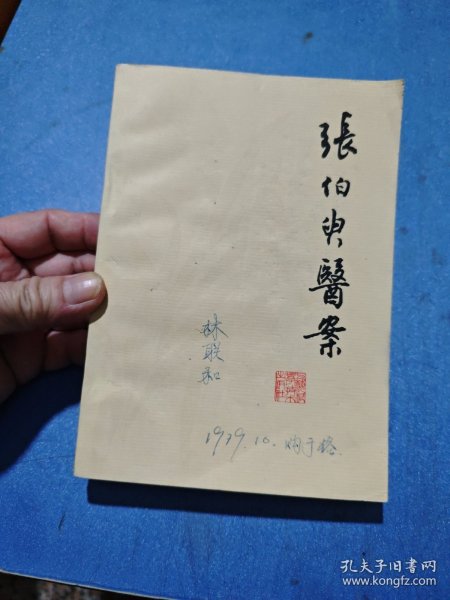 張伯臾醫案
林联和
1979.10. 购于榕.
孔夫子旧书网
www.kongfz.com